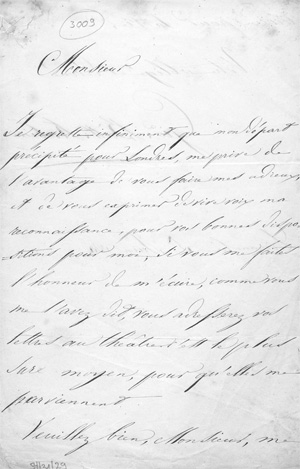 3009
Monsieur
Je regrette infiniment que mon départ
précipité pour Londres, me prive de
l'avantage de vous faire mes adieux,
et de vous exprimer de vive voix ma
reconnaissance pour vos bonnes dispo
sitions pour moi, si vous me faites
l'honneur de m'écrire, comme vous
me l'avez dit, vous adresserez vos
lettres au théâtre c'est le plus
sure moyen, pour qu'elles me
parviennent
Veuillez bien, Monsieur, me